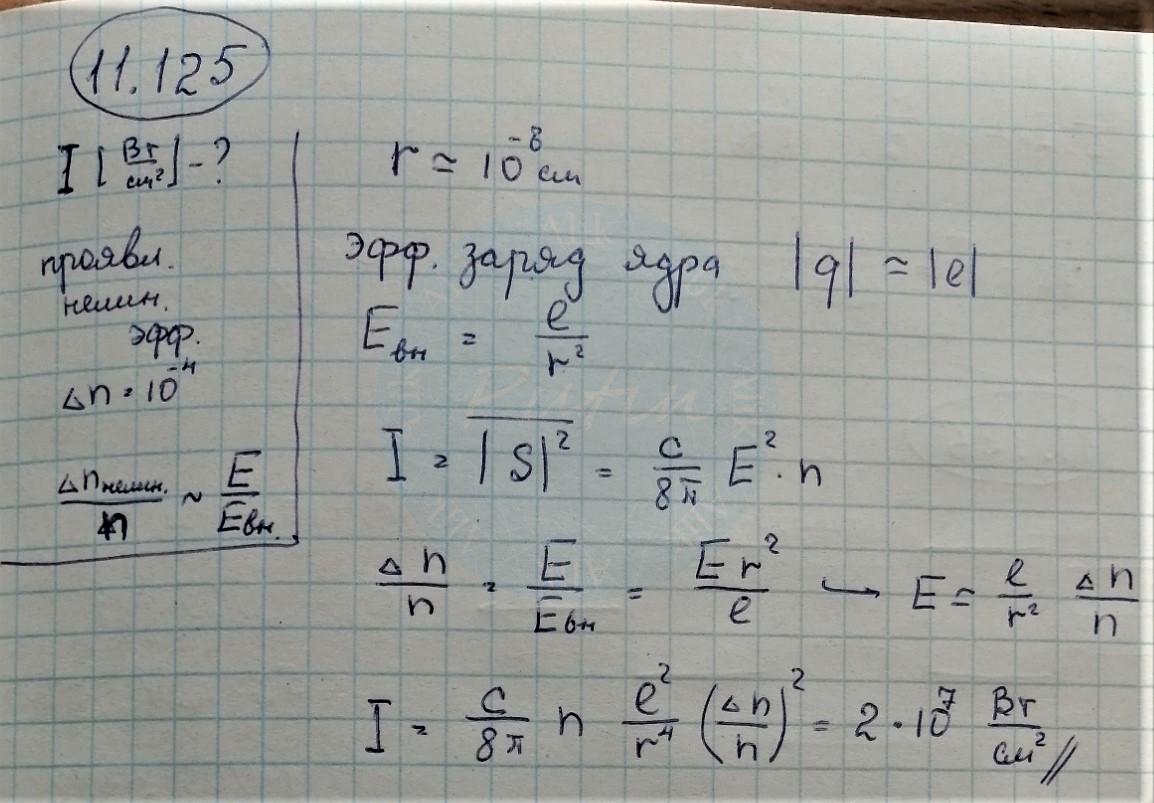 11.125
I [Вт/см²] - ?
проявл.
нелин.
эфф.
Δn = 10⁻⁴
Δnнелин./n ~ E/Eвн.
r ≃ 10⁻⁸ см
Эфф. заряд ядра |q| ≃ |e|
Eвн = e/r²
I = |S|² = c/8π E² · n
Δn/n = E/Eвн = Er²/e → E = e/r² Δn/n
I = c/8π n e²/r⁴ (Δn/n)² = 2·10⁷ Вт/см² //